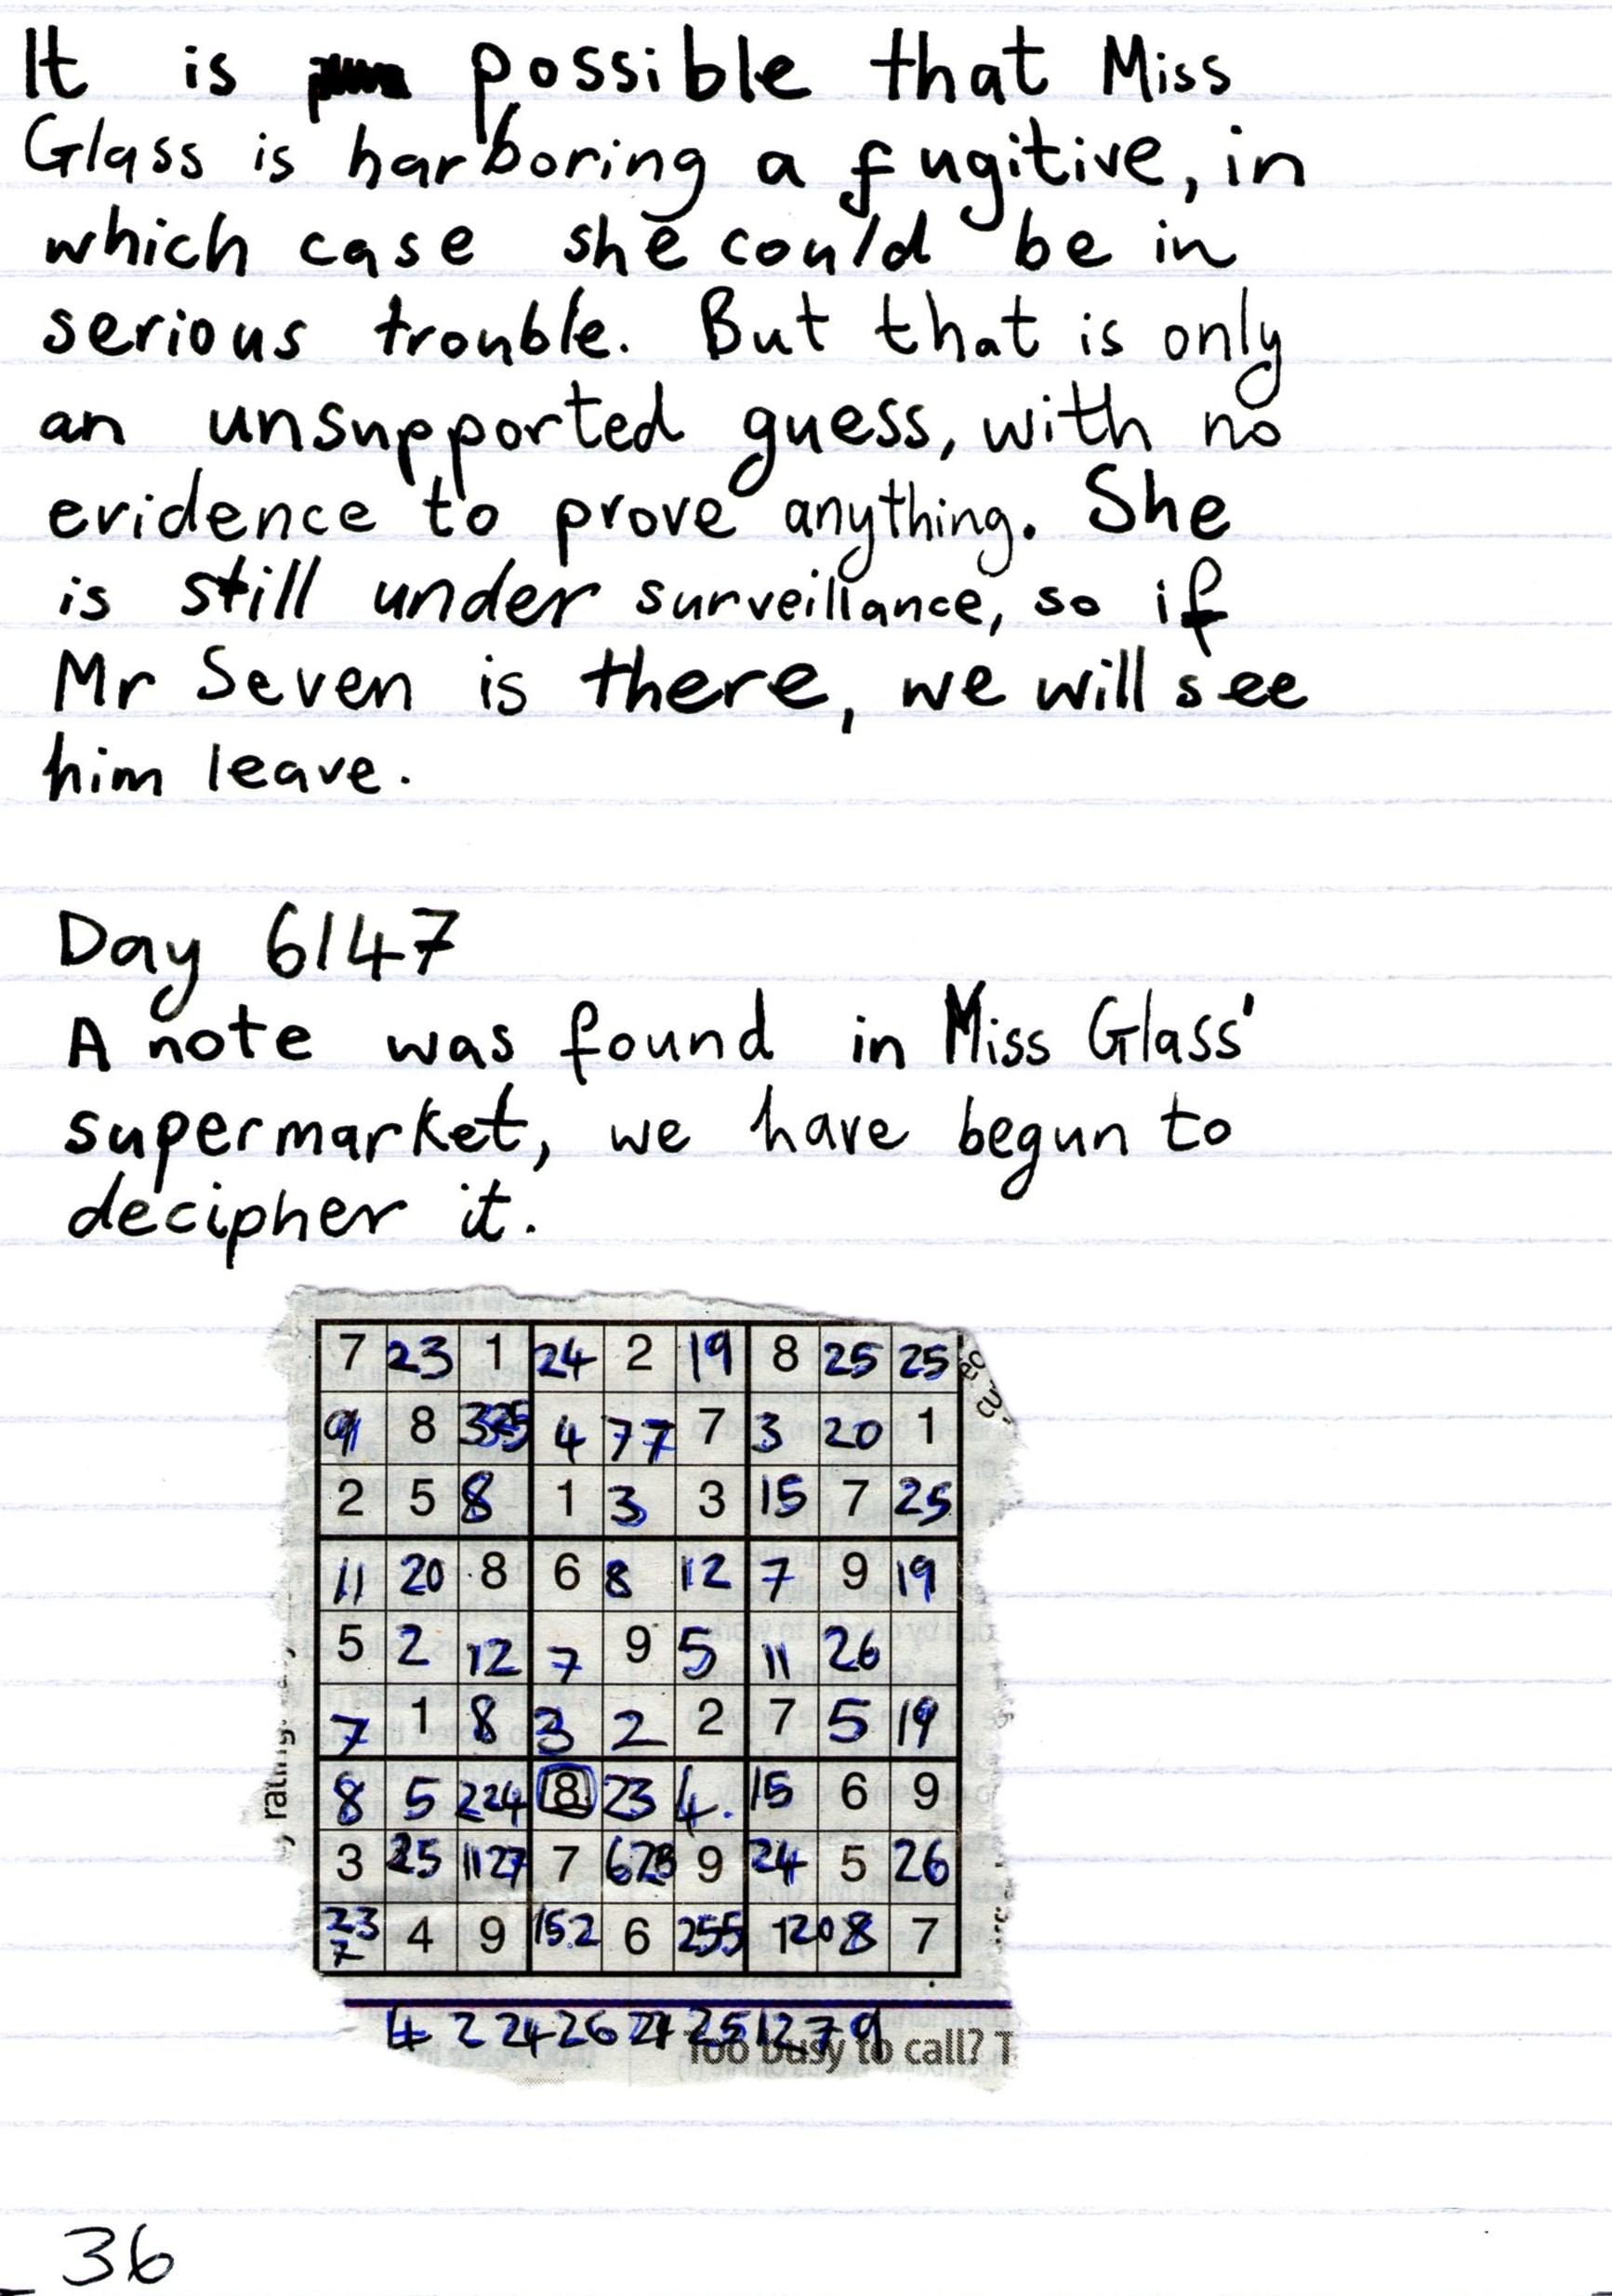 It is possible that Miss
Glass is harboring a fugitive, in
which case she could be in
serious trouble. But that is only
an unsupported guess, with no
evidence to prove anything. She
is still under surveillance, so if
Mr Seven is there, we will see
him leave.
Day 6147
A note was found in Miss Glass'
supermarket, we have begun to
decipher it.
7 23 1 24 2 19 8 25 25
9 8 4 77 7 3 20 1
2 5 8 1 3 3 15 7 25
11 20 8 6 8 12 7 9 19
5 2 12 7 9 5 11 26
7 1 8 3 2 2 7 5 19
8 5 224 8 23 4. 15 6 9
3 25 1127 7 9 24 5 26
23 7 4 9 152 6 255 120 8 7
4 2 24 26 25 12 7 9
Too busy to call? T
rating.
36